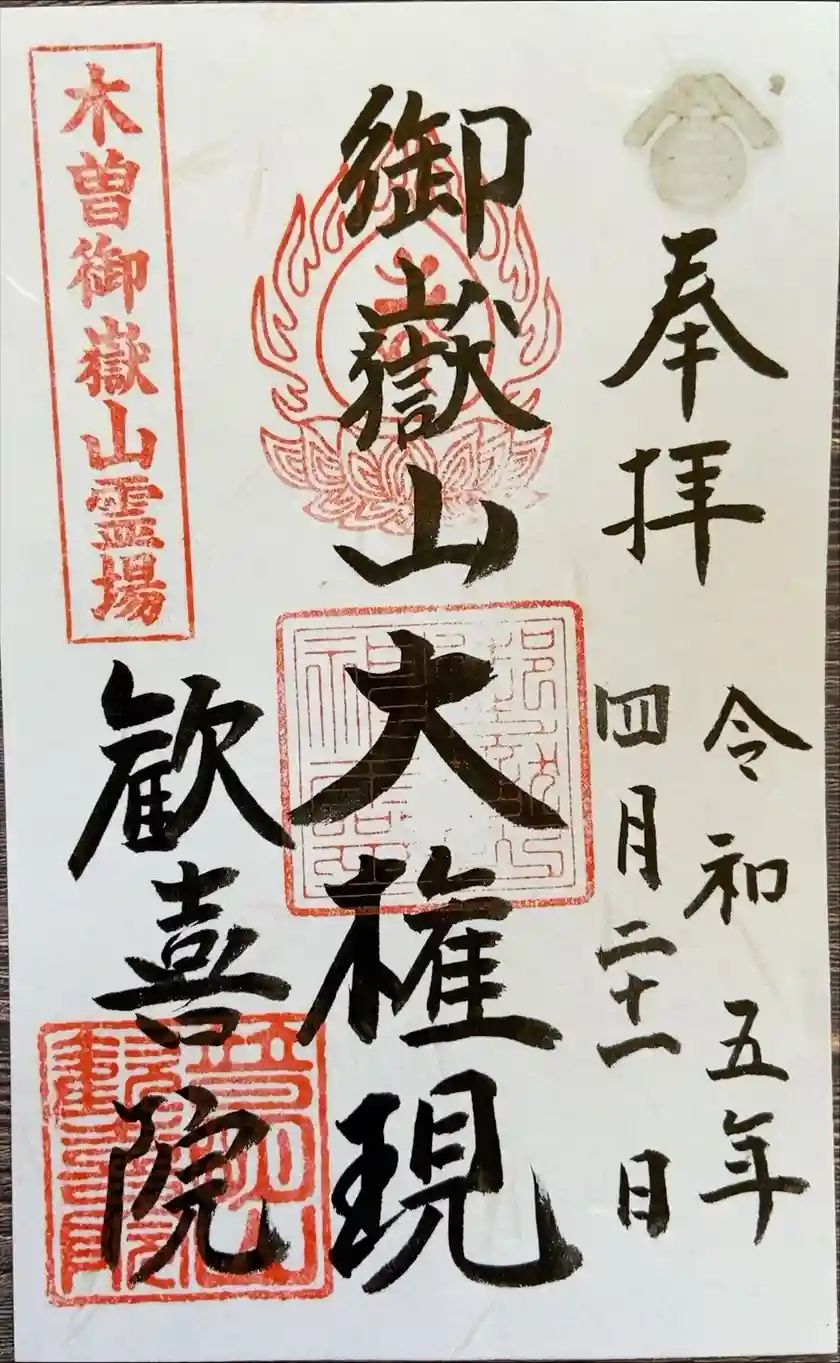 奉拝
令和五年
四月二十一日
御嶽山大権現
歓喜院
木曽御嶽山霊場